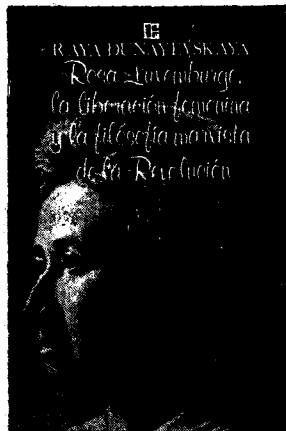 RAYA DUNAYEVSKAYA
Rosa Luxemburgo,
la liberación femenina
y la filosofía marxista
de la Revolución